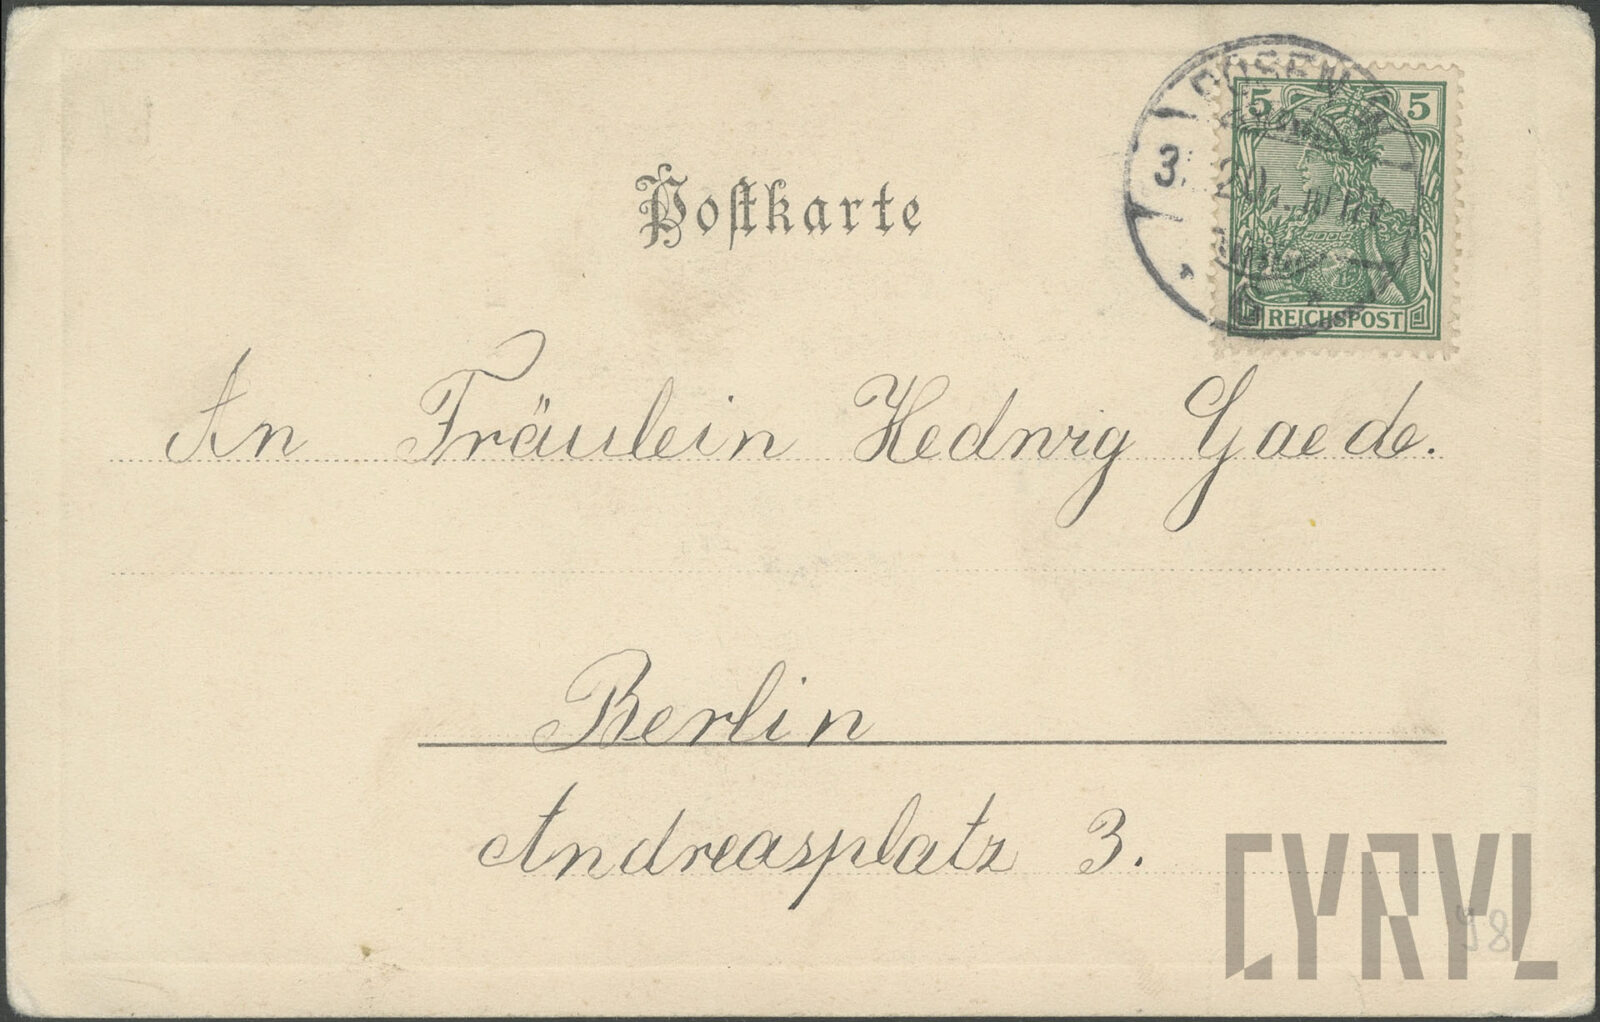 Postkarte
POSEN
5 5
3.
REICHSPOST
An Fräulein Hedwig Gaede.
Berlin
Andreasplatz 3.
CYRYL
98